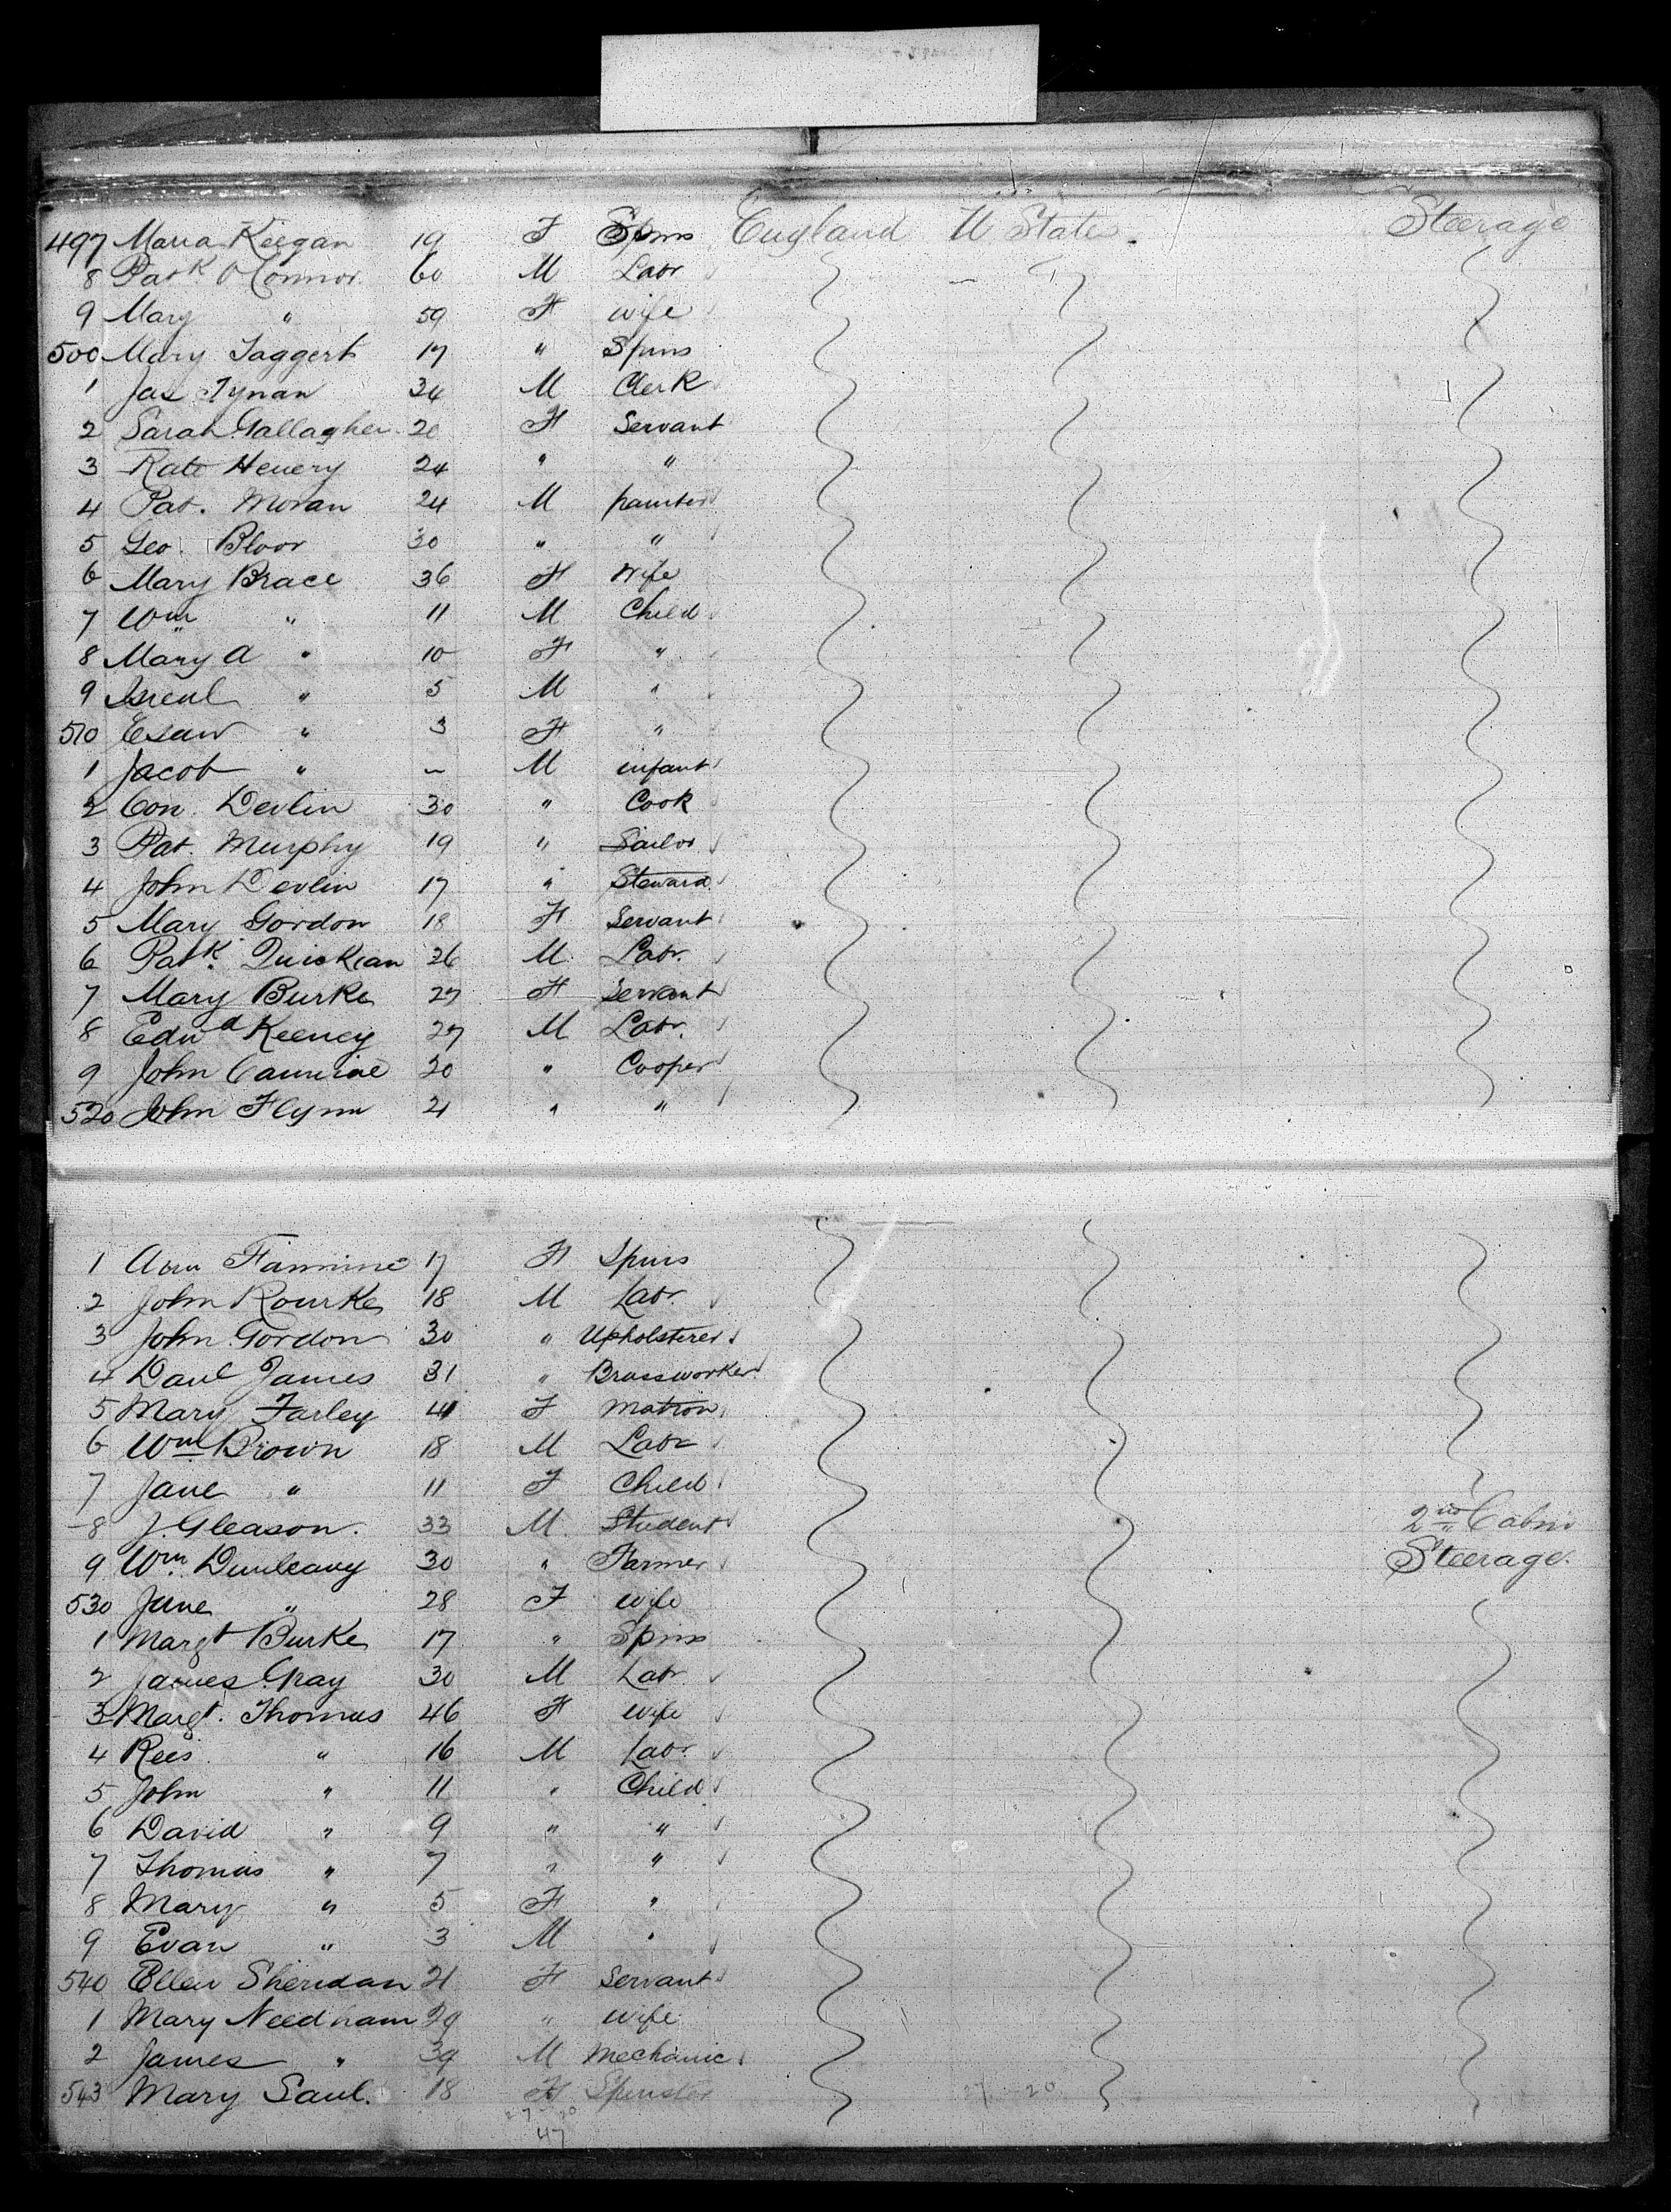 497 Maria Keegan 19 F Spins England U States Steerage
8 Patk O'Connor 60 M Labr
9 Mary " 59 F wife
500 Mary Taggert 17 " Spins
1 Jas Tynan 34 M Clerk
2 Sarah Gallagher 20 F Servant
3 Kate Henery 24 " "
4 Pat. Moran 24 M painter
5 Geo. Bloor 30 " "
6 Mary Brace 36 F Wife
7 Wm " 11 M Child
8 Mary A " 10 F "
9 " 5 M "
510 Esaw " 3 F "
1 Jacob " ~ M infant
2 Con. Devlin 30 " Cook
3 Pat. Murphy 19 " Sailor
4 John Devlin 17 " Steward
5 Mary Gordon 18 F Servant
6 Patk. Quickean 26 M Labr.
7 Mary Burke 27 F Servant
8 Edwd Keeney 27 M Labr.
9 John 20 " Cooper
520 John Flynn 21 " "
1 Ann 17 F Spins
2 John Rourke 18 M Labr.
3 John Gordon 30 " Upholsterer
4 Danl James 31 " Brassworker
5 Mary Farley 41 F Matron
6 Wm Brown 18 M Labr
7 Jane " 11 F Child
8 J. Gleason. 33 M Student 2nd Cabin
9 Wm. Dunleavy 30 " Farmer Steerage.
530 Jane " 28 F wife
1 Margt Burke 17 " Spins
2 James Gray 30 M Labr
3 Margt. Thomas 46 F wife
4 Rees " 16 M Labr.
5 John " 11 " Child
6 David " 9 " "
7 Thomas " 7 " "
8 Mary " 5 F "
9 Evan " 3 M "
540 Ellen Sheridan 21 F Servant
1 Mary Needham 29 " wife
2 James " 39 M Mechanic
543 Mary Saul. 18 F Spinster 27 20
27 20
47